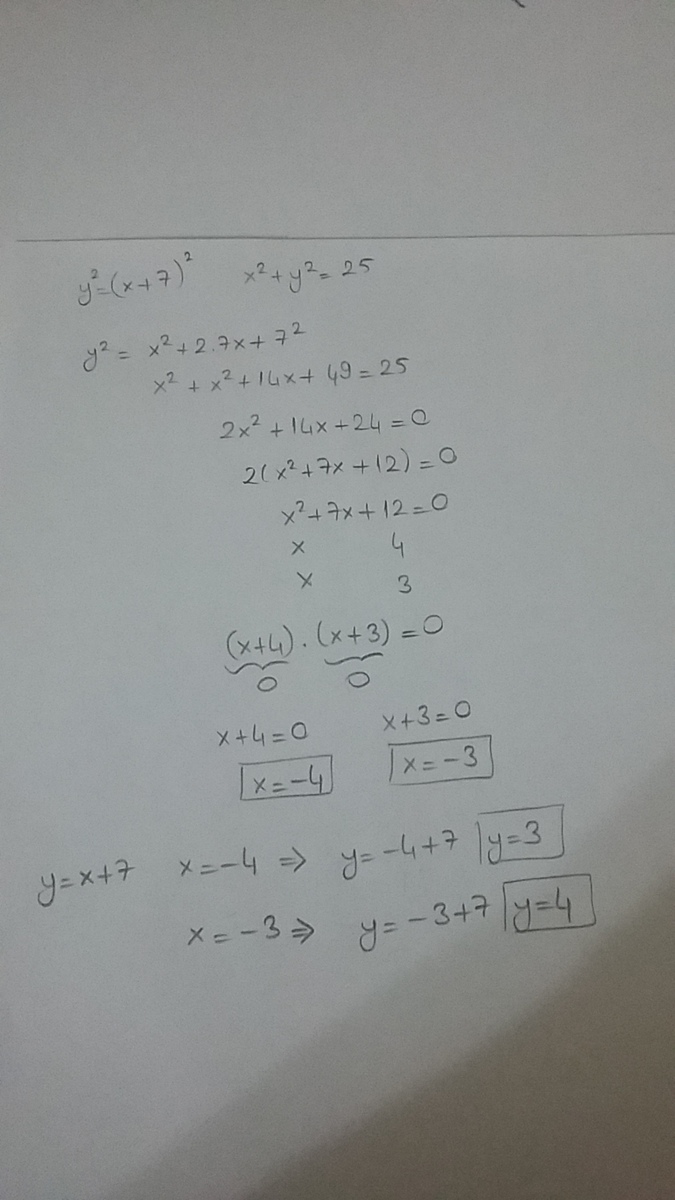 y²=(x+7)² x²+y²=25
y² = x²+2.7x+7²
x²+x²+14x+49=25
2x²+14x+24=0
2(x²+7x+12)=0
x²+7x+12=0
x 4
x 3
(x+4).(x+3)=0
0 0
x+4=0 x+3=0
x=-4 x=-3
y=x+7 x=-4 ⇒ y=-4+7 y=3
x=-3 ⇒ y=-3+7 y=4